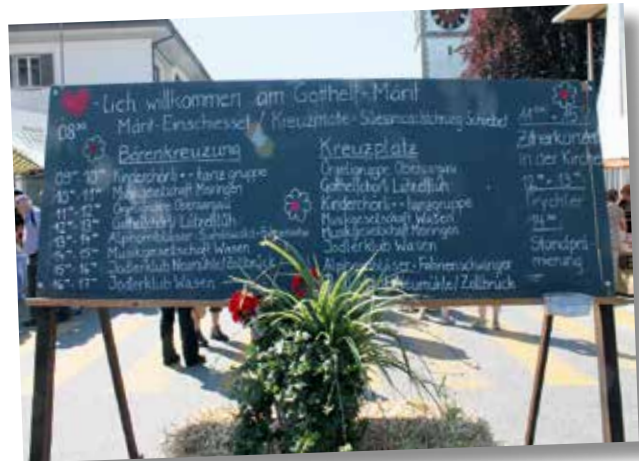 -lich willkommen am Gotthelf-Märit
08⁰⁰ Märit-Einschiesset / Kreuzmote-
Bärenkreuzung
09⁰⁰ 10⁰⁰ Kinderchörli + -tanzgruppe
10⁰⁰ 11⁰⁰ Musikgesellschaft
11⁰⁰-12⁰⁰ Oberaargau
12⁰⁰-13⁰⁰ Gotthelfchörli Lützelflüh
13⁰⁰-14⁰⁰ Alphornbläser
14⁰⁰-15⁰⁰ Musikgesellschaft Wasen
15⁰⁰-16⁰⁰ Jodlerklub Neumühle/Zollbrück
16⁰⁰-17⁰⁰ Jodlerklub Wasen
Kreuzplatz
Oberaargau
Gotthelfchörli Lützelflüh
Kinderchörli + -tanzgruppe
Musikgesellschaft Wasen
Musikgesellschaft
Jodlerklub Wasen
Alphornbläser + Fahnenschwinger
Neumühle/Zollbrück
11⁰⁰ + 15
Zitherkonzert
in der Kirche
12⁰⁰ + 13⁰⁰
Trychler
Standprä-
mierung